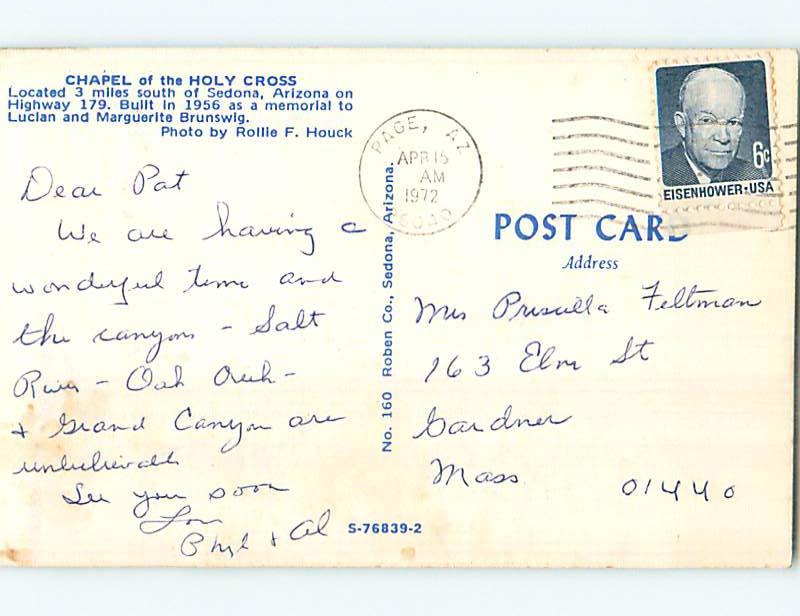 CHAPEL of the HOLY CROSS
Located 3 miles south of Sedona, Arizona on
Highway 179. Built in 1956 as a memorial to
Lucian and Marguerite Brunswig.
Photo by Rollie F. Houck
Dear Pat
We are having a
wonderful time and
the canyons - Salt
River - Oak Creek -
& Grand Canyon are
unbelievable
See you soon
Love
Phyl & Al
S-76839-2
No. 160 Roben Co., Sedona, Arizona.
PAGE, AZ
APR 15
AM
1972
86040
6c
EISENHOWER·USA
POST CARD
Address
Mrs Priscilla Feltman
163 Elm St
Gardner
Mass 01440